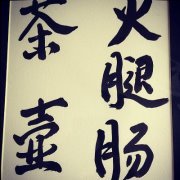 火腿肠
茶壶